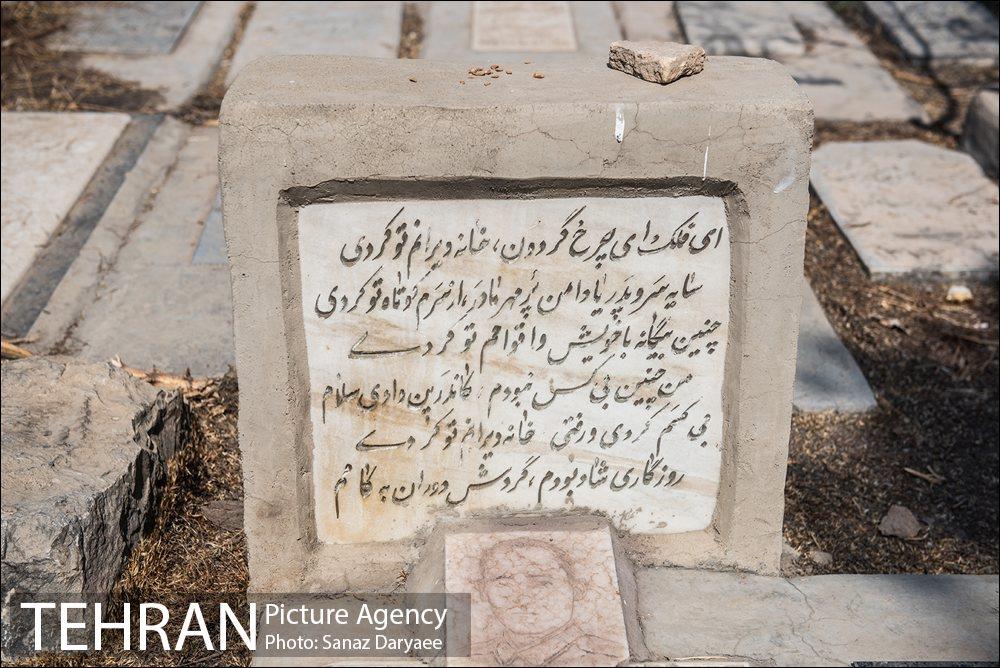 ای فلک ای چرخ گردون، خانه ویرانم تو کردی
سایه سرو پدر یا دامن پُر مهر مادر، از سَرَم کوتاه تو کردی
چنین بیگانه با خویش و اقوامم تو کردے
من چنین بی کس نبودم، کاندرین وادی سلام
بی کسم کردی و رفتی خانه ویرانم تو کردے
روزگاری شاد بودم، گردش دوران به کامم
TEHRAN Picture Agency
Photo: Sanaz Daryaee